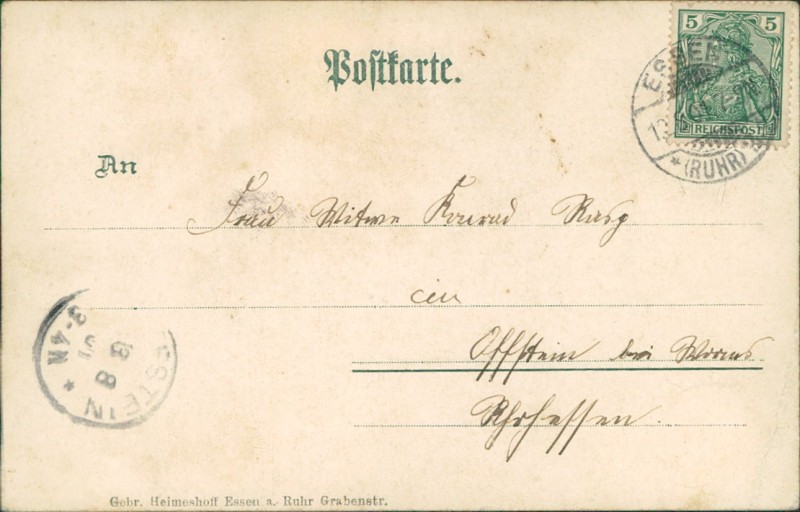 Postkarte.
5 5
REICHSPOST
ESSEN
*(RUHR)
An
Frau Witwe Konrad
in
Offstein bei Worms
Rhhessen.
3-4N
13 8
STEIN *
Gebr. Heimeshoff Essen a. Ruhr Grabenstr.